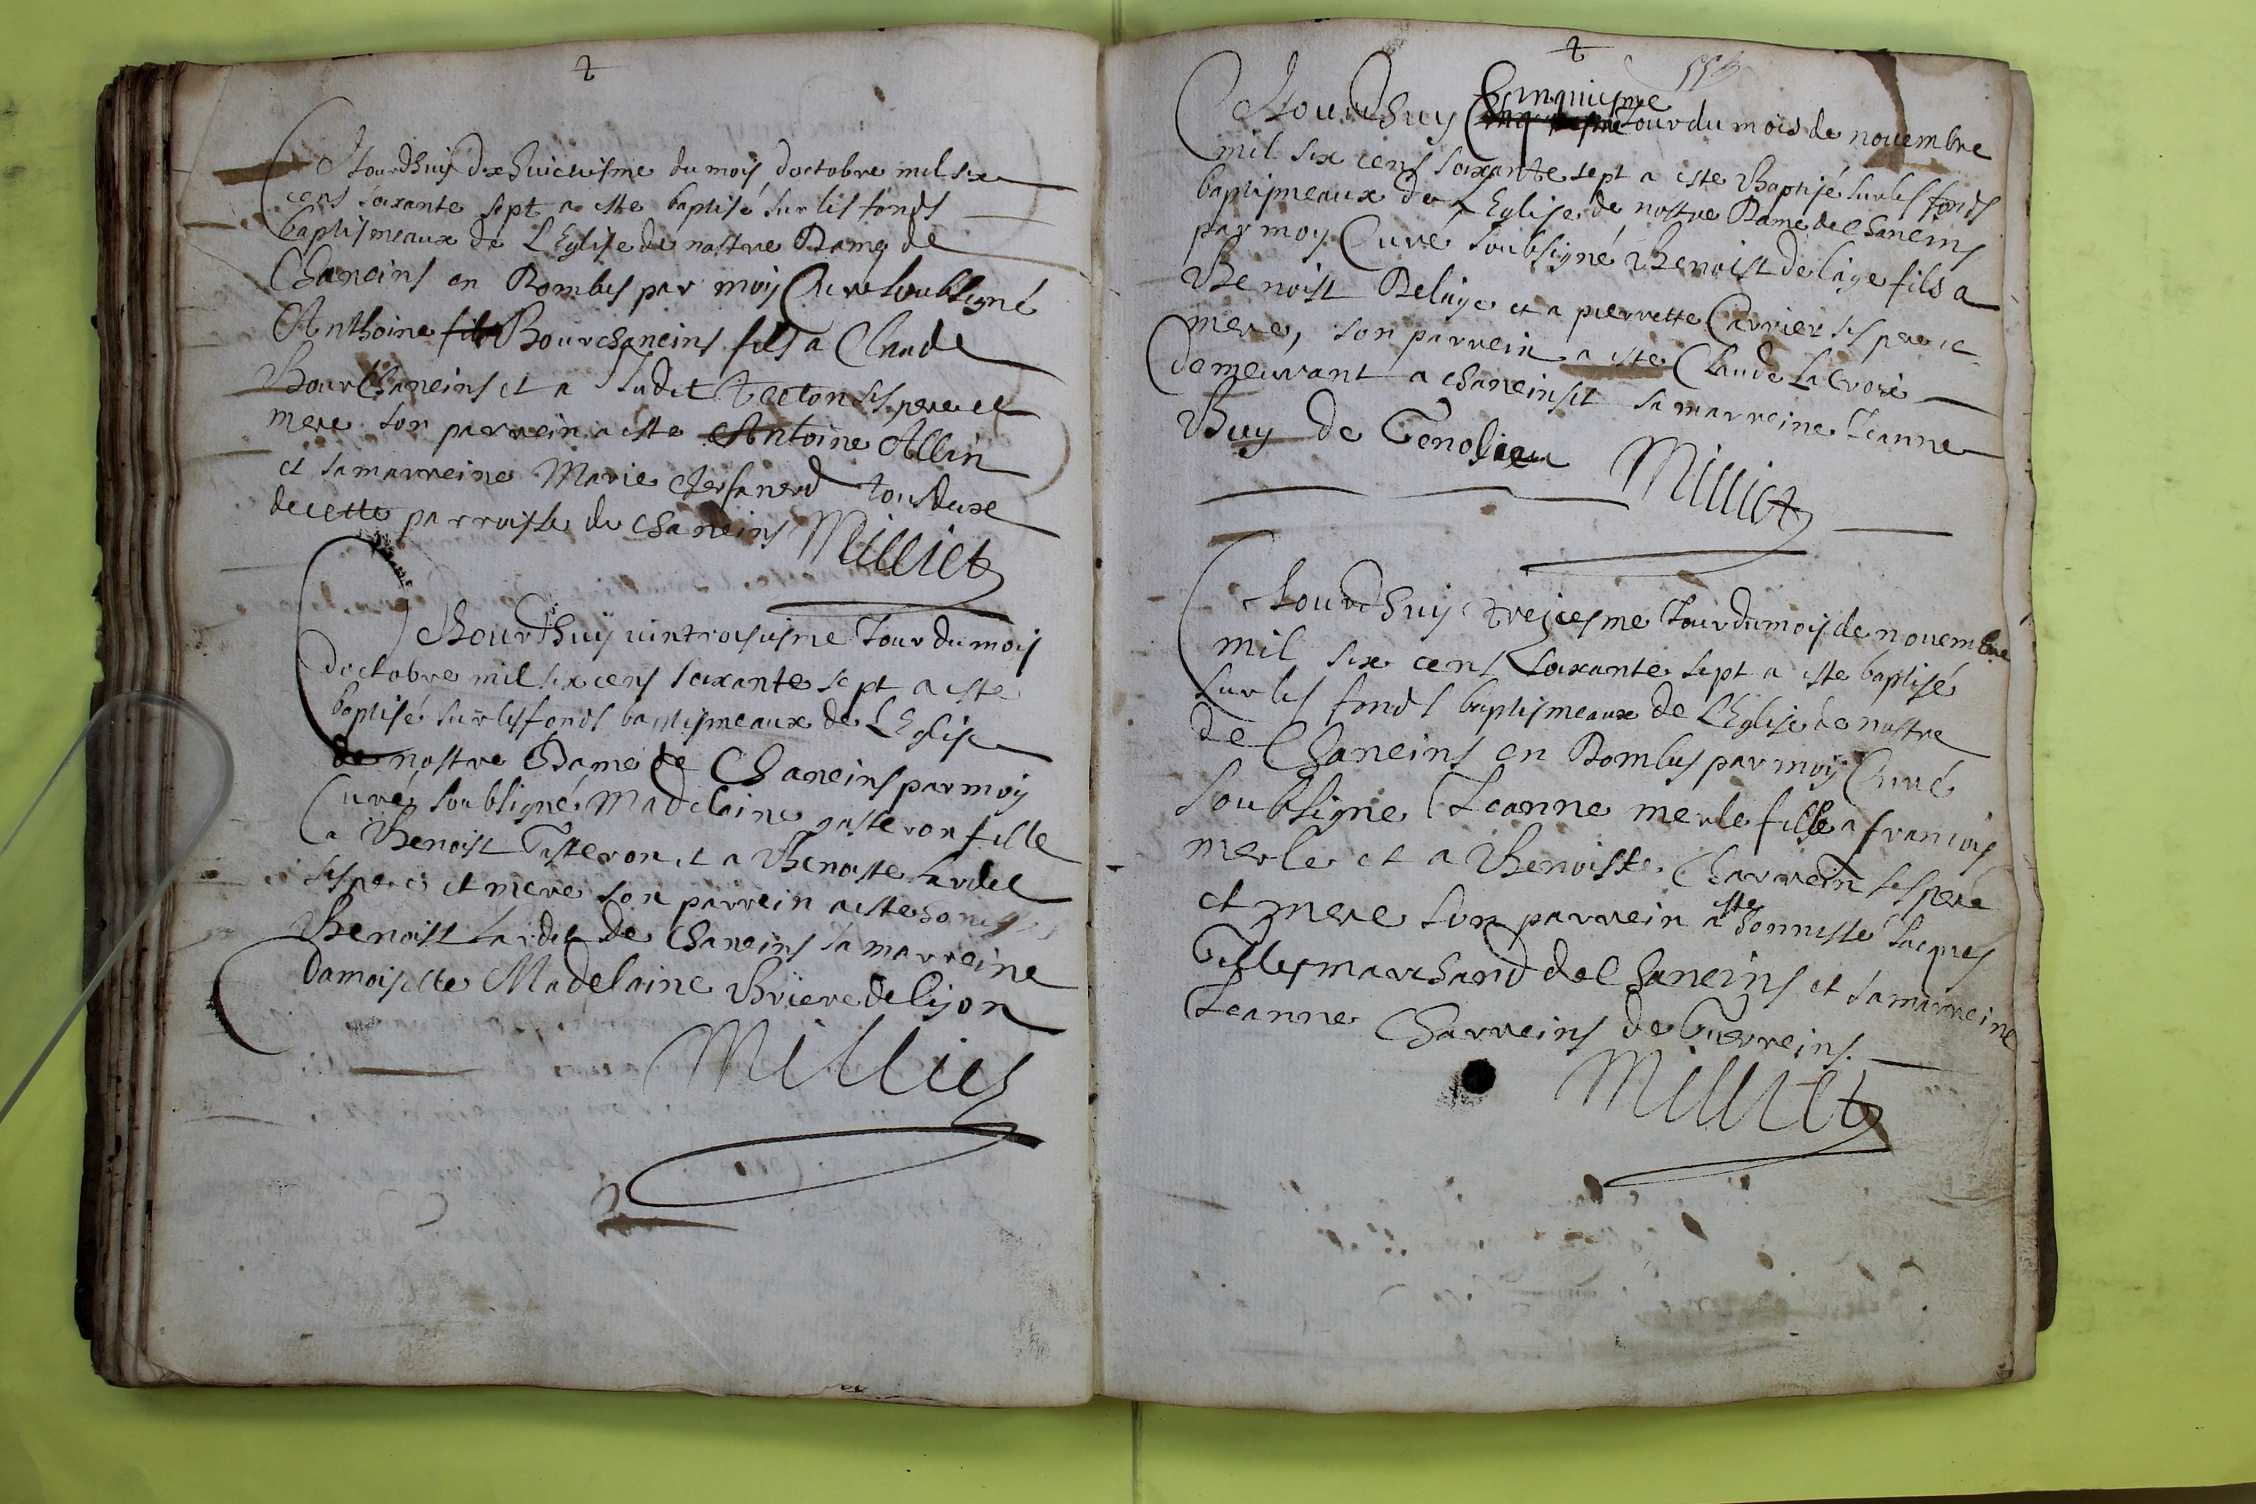 Aiourdhuy dixhuictiesme du mois doctobre mil six
cens soixante sept a este baptisé sur les fonds
baptismeaux de L Eglise de nostre Dame de
Chaneins en Dombes par moy Curé soubsigné
Anthoine Bourchaneins fils a Claude
Bourchaneins et a Judit ses pere et
mere son parrein a este Antoine Allin
et sa marreine Marie tous deux
de cette parroisse de chaneins Milliet
Aiourdhuy vintroisiesme Jour du mois
doctobre mil six cens soixante sept a este
baptisé sur les fonds baptismeaux de L Eglise
de nostre Dame de Chaneins par moy
Curé soubsigné Madelaine gasteron fille
a Benoist Gasteron et a Benoiste Lardet
ses pere et mere son parrein a este
Benoist Lardet de Chaneins sa marreine
damoiselle Madelaine Briere de lyon
Milliet
Aiourdhuy Cinquiesme Jour du mois de novembre
mil six cens soixante sept a este Baptisé sur les fonds
baptismeaux de L Eglise de nostre Dame de Chaneins
par moy Curé soubsigné Benoist delaye fils a
Benoist Delaye et a pierrette Carrier ses pere et
mere, son parrein a este Claude Lacroix
demeurant a chaneins et sa marreine Jeanne
Buy de Genolieu Milliet
Aiourdhuy treiziesme Jour du mois de novembre
mil six cens soixante sept a este baptisé
sur les fonds baptismeaux de L Eglise de nostre
de Chaneins en Dombes par moy Curé
soubsigne Jeanne merle fille a francois
merle et a Benoiste Charrein ses pere
et mere son parrein a este honneste Jacques
marchand de Chaneins et sa marreine
Jeanne Charreins de Guerreins.
Milliet